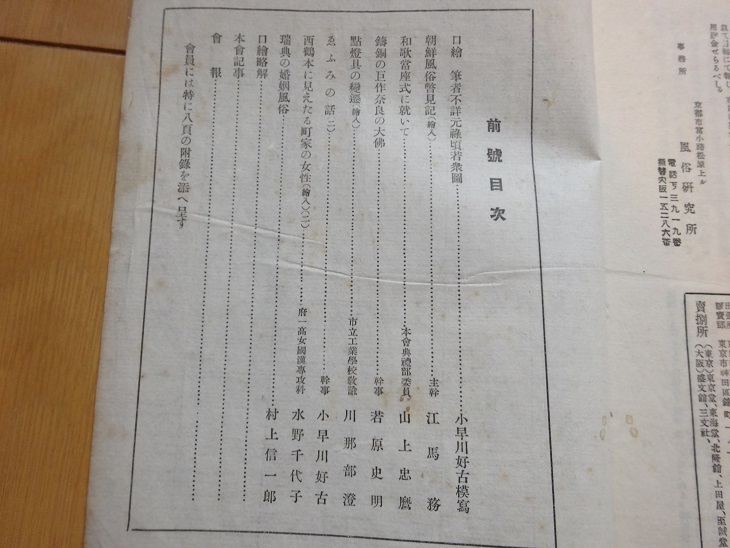 賣捌所
(東京)東京堂、東海堂、北隆館、上田屋、至誠堂
(大阪)盛文館、三文社、
事務所
京都市富小路松原上ル
風俗研究所
電話下三九一九番
振替大阪一五二八六番
前號目次
口繪 筆者不詳元祿頃若衆圖……小早川好古模寫
朝鮮風俗瞥見記(繪入)……主幹 江馬務
和歌當座式に就いて……本會典禮部委員 山上忠麿
鑄銅の巨作奈良の大佛……幹事 若原史明
點燈具の變遷(繪入)……市立工業學校敎諭 川那部澄
ゑふみの話(二)……幹事 小早川好古
西鶴本に見えたる町家の女性(繪入)(二)……府一高女國漢專攻科 水野千代子
瑞典の婚姻風俗……村上信一郎
口繪略解……
本會記事……
會報……
會員には特に八頁の附錄を添へ呈す